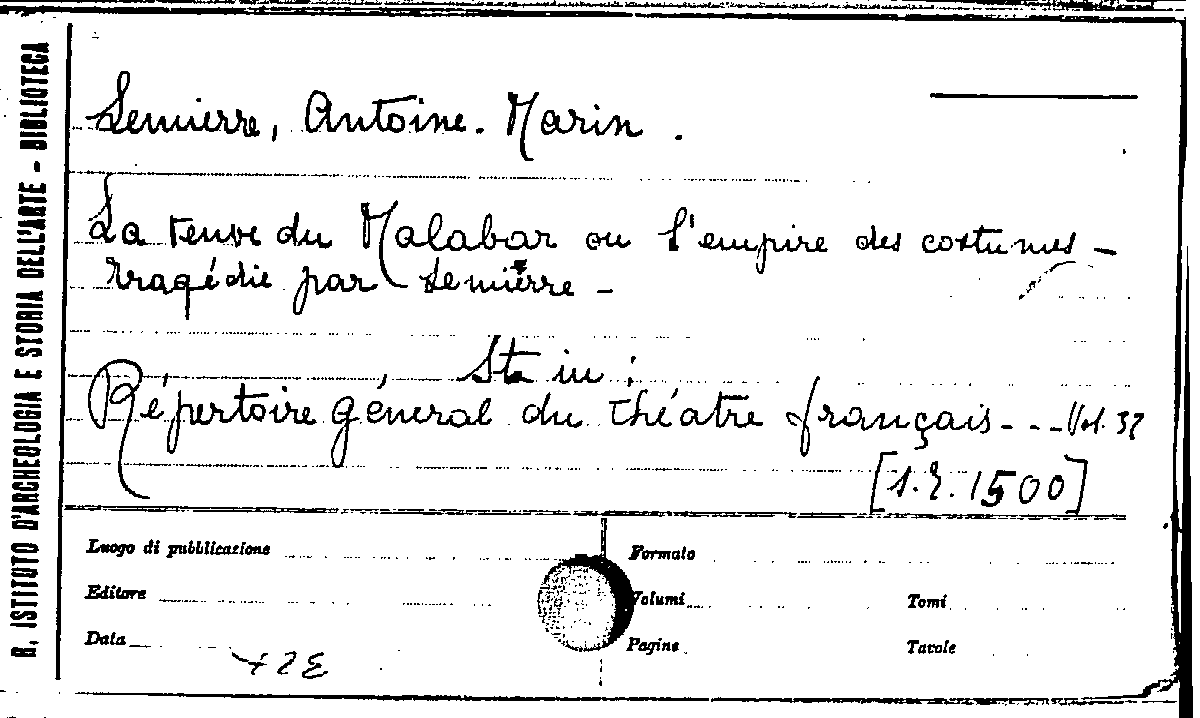 R. ISTITUTO D'ARCHEOLOGIA E STORIA DELL'ARTE - BIBLIOTECA
Lemierre, Antoine. Marin.
La veuve du Malabar ou l'empire des costumes -
tragédie par Lemierre -
Sta in:
Répertoire général du théâtre français - - - Vol. 32
[s.r. 1500]
Luogo di pubblicazione
Formato
Editore
Volumi
Tomi
Data
Pagine
Tavole